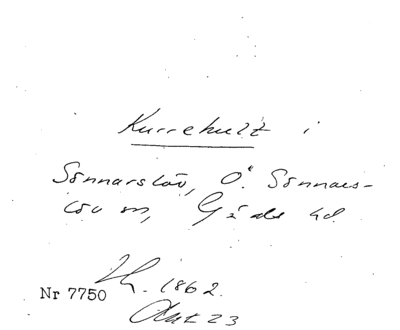 Kurrehult i
Sönnarslöv, Ö. Sönnars-
löv sn, Gärds hd
1862.
Nr 7750
Akt 23